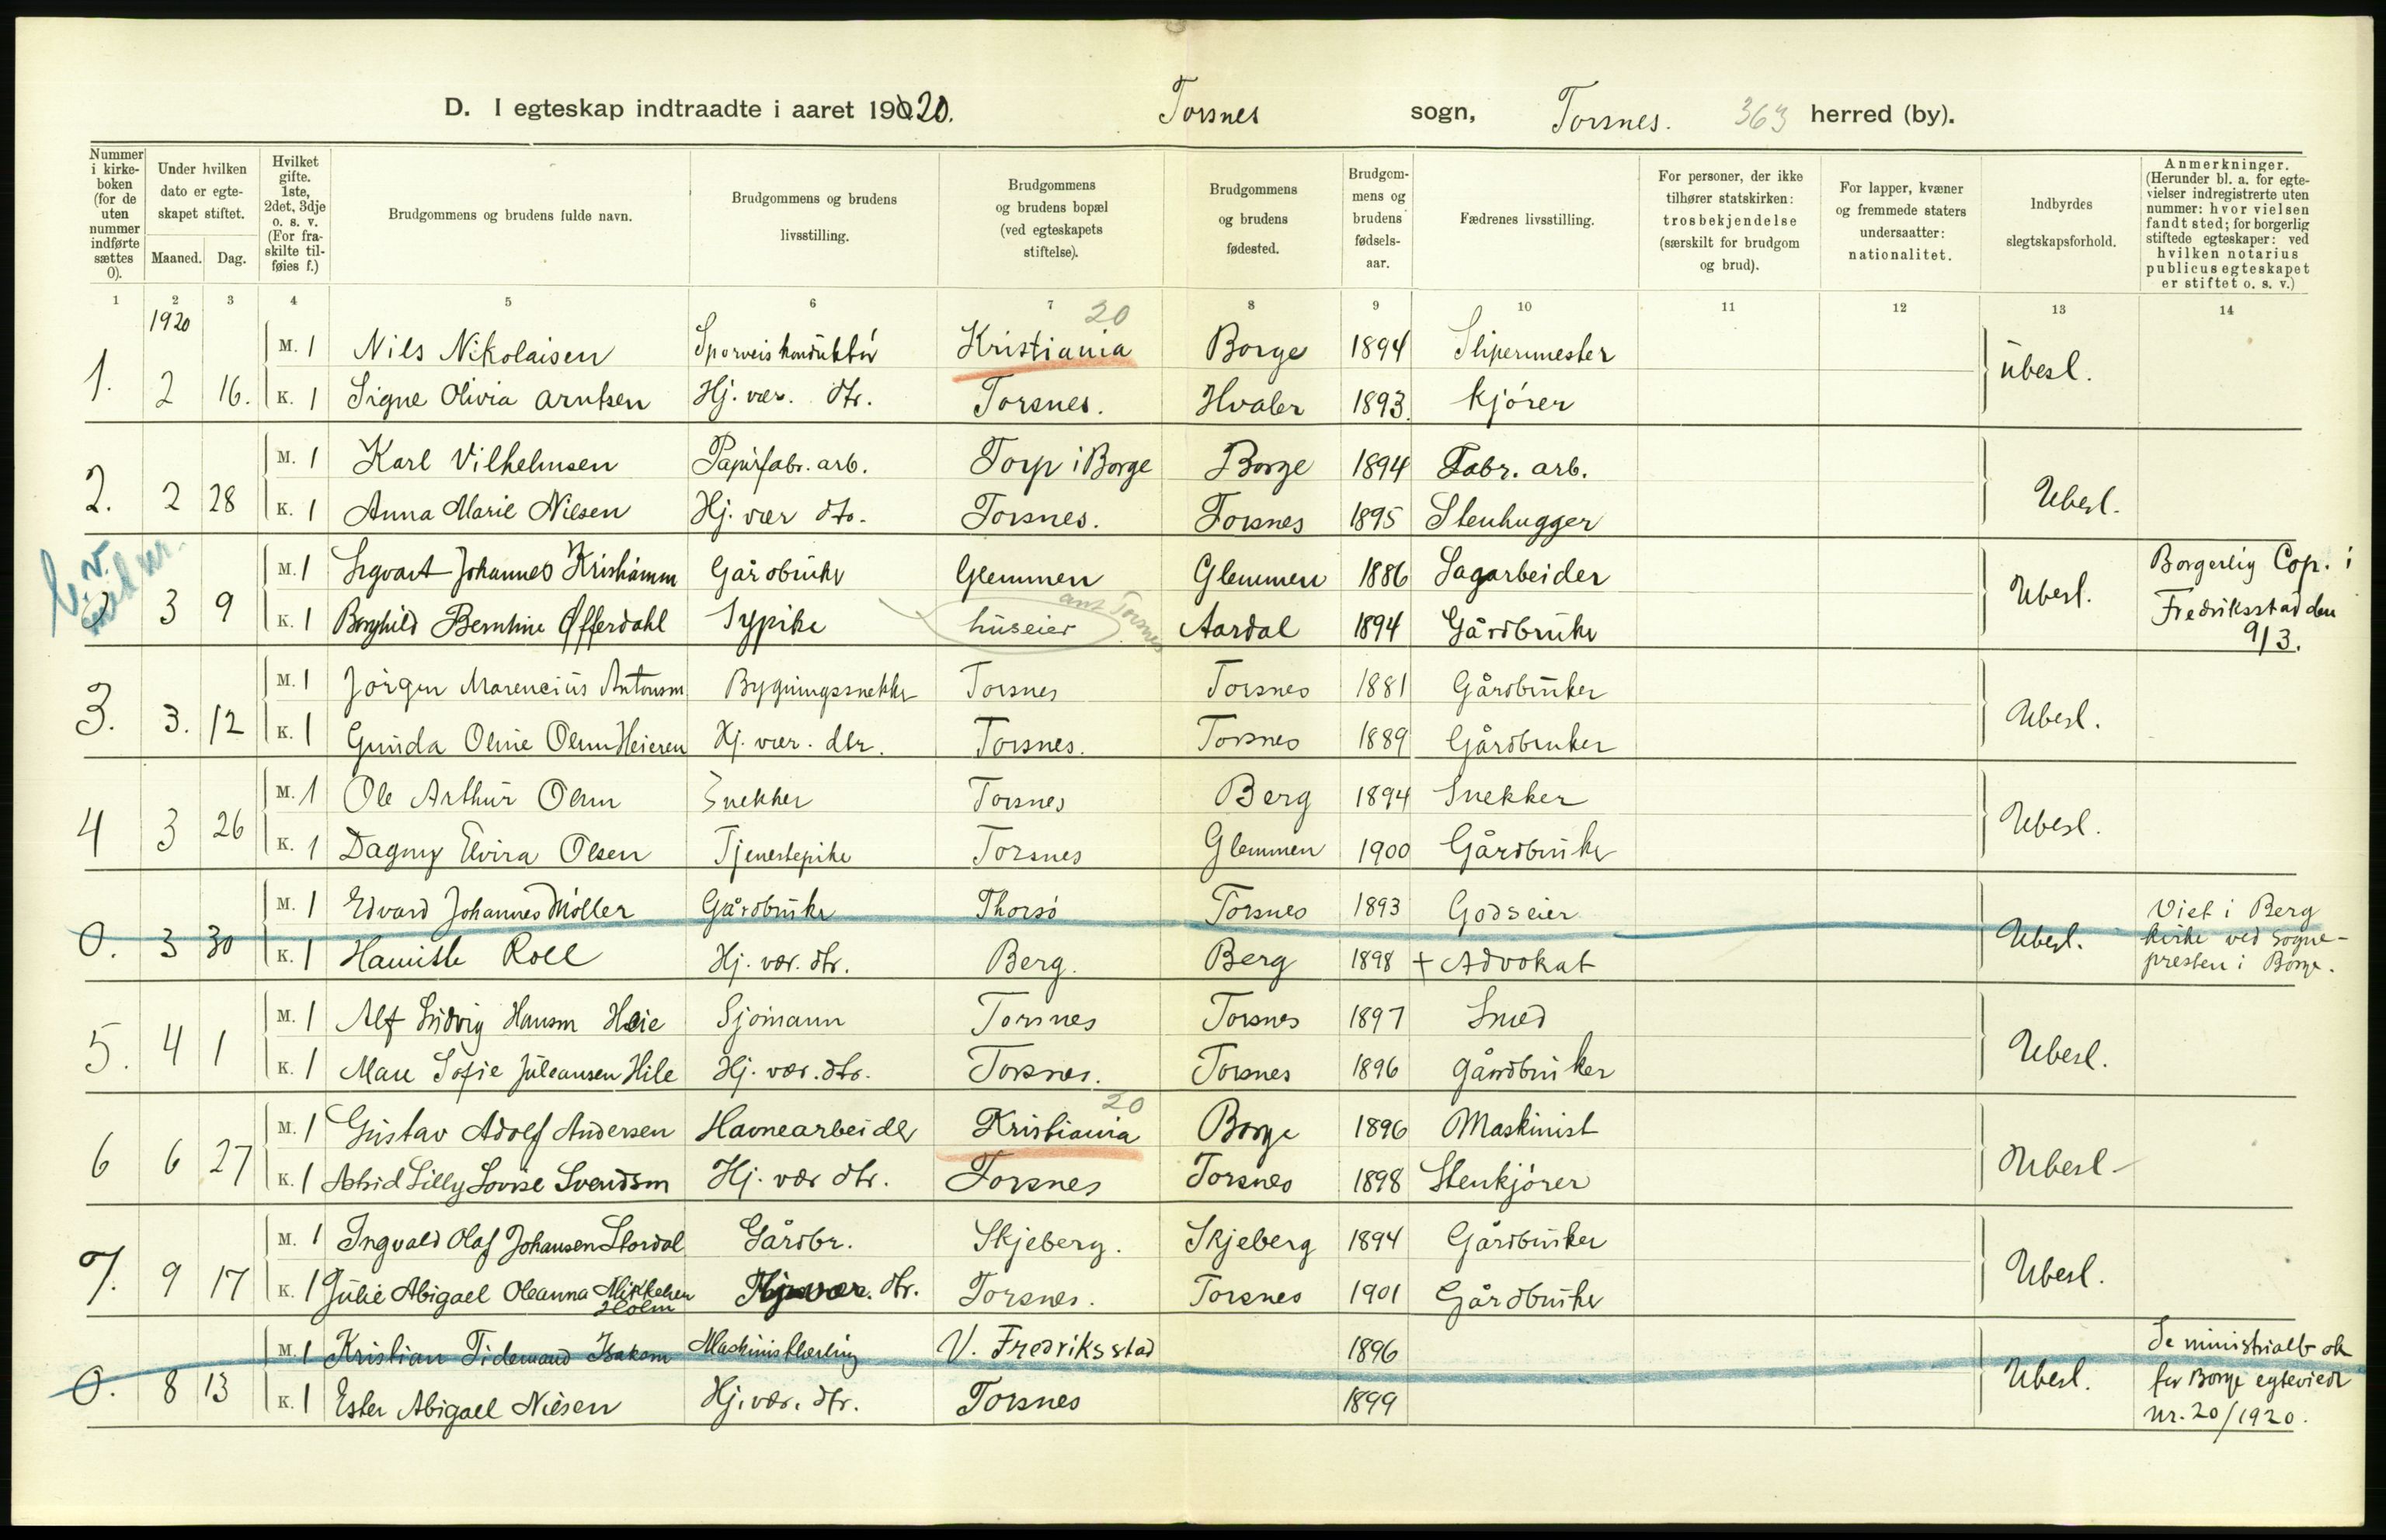 D. I egteskap indtraadte i aaret 1920. Torsnes sogn, Torsnes. 363 herred (by).
Nummer i kirkeboken (for de uten nummer indførte sættes 0). | Under hvilken dato er egteskapet stiftet. Maaned. Dag. | Hvilket gifte. 1ste, 2det, 3dje o. s. v. (For fraskilte tilføies f.) | Brudgommens og brudens fulde navn. | Brudgommens og brudens livsstilling. | Brudgommens og brudens bopæl (ved egteskapets stiftelse). | Brudgommens og brudens fødested. | Brudgommens og brudens fødselsaar. | Fædrenes livsstilling. | For personer, der ikke tilhører statskirken: trosbekjendelse (særskilt for brudgom og brud). | For lapper, kvæner og fremmede staters undersaatter: nationalitet. | Indbyrdes slegtskapsforhold. | Anmerkninger. (Herunder bl. a. for egtevielser indregistrerte uten nummer: hvor vielsen fandt sted; for borgerlig stiftede egteskaper: ved hvilken notarius publicus egteskapet er stiftet o. s. v.)
1 2 3 4 5 6 7 8 9 10 11 12 13 14
1920 20
M. 1 Nils Nikolaisen Sporveiskonduktör Kristiania Borge 1894 Slipermester
1. 2 16. K. 1 Signe Olivia Arntsen Hj. vær. dtr. Torsnes. Hvaler 1893. Kjörer Ubesl.
M. 1 Karl Vilhelmsen Papirfabr. arb. Torp i Borge Borge 1894 Fabr. arb.
2. 2 28 K. 1 Anna Marie Nilsen Hj. vær dtr. Torsnes. Torsnes 1895 Stenhugger Ubesl.
M. 1 Sigvart Johannes Kristiansen Gårdbruker Glemmen Glemmen 1886 Sagarbeider Borgerlig Cop. i
3 9 K. 1 Borghild Berntine Offerdahl Sypike huseier ant Torsnes Aardal 1894 Gårdbruker Ubesl. Fredriksstad den
9/3.
M. 1 Jörgen Marencius Antonsen Bygningssnekker Torsnes Torsnes 1881 Gårdbruker
3. 3. 12 K. 1 Gunda Oline Olsen Heieren Hj. vær. dtr. Torsnes. Torsnes 1889 Gårdbruker Ubesl.
M. 1 Ole Arthur Olsen Snekker Torsnes Berg 1894 Snekker
4 3 26 K. 1 Dagny Elvira Olsen Tjenestepike Torsnes Glemmen 1900 Gårdbruker Ubesl.
M. 1 Edvard Johannes Möller Gårdbruker Thorsö Torsnes 1893 Godseier Viet i Berg
0. 3 30 K. 1 Roll Hj. vær. dtr. Berg. Berg 1898 + Advokat Ubesl. kirke ved Sogne-
presten i Borge.
M. 1 Alf Ludvig Hansen Heie Sjömann Torsnes Torsnes 1897 Smed
5. 4 1 K. 1 Sofie Juleansen Hj. vær. dtr. Torsnes. Torsnes 1896 Gårdbruker Ubesl.
20
M. 1 Gustav Adolf Andersen Havnearbeider Kristiania Borge 1896 Maskinist
6 6 27 K. 1 Astrid Lilly Lovise Svendsen Hj. vær dtr. Torsnes Torsnes 1898 Stenkjörer Ubesl.
M. 1 Ingvald Olaf Johansen Stordal Gårdbr. Skjeberg. Skjeberg 1894 Gårdbruker
7. 9 17 K. 1 Julie Abigael Oleanna Mikkelsen Holm Hj. vær. dtr. Torsnes. Torsnes 1901 Gårdbruker Ubesl.
M. 1 Kristian Tidemand Isaksen Maskinistlærling V. Fredriksstad 1896 Se ministrialb ok
0. 8 13 K. 1 Ester Abigael Nilsen Hj. vær. dtr. Torsnes 1899 Ubesl. for Borge egteviede
nr. 20/1920.